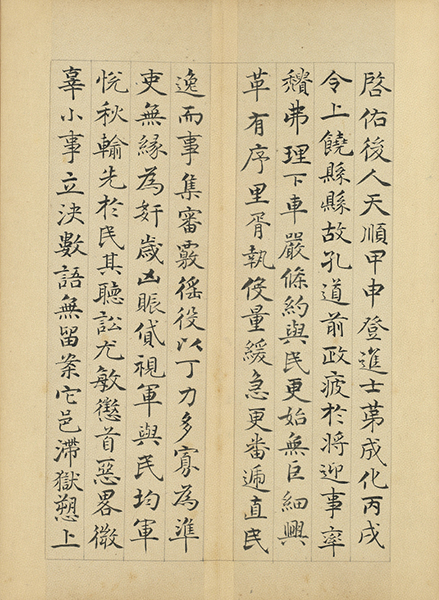 啓佑後人天順甲申登進士第成化丙戌
令上饒縣縣故孔道前政疲於將迎事率
穳弗理下車嚴條約與民更始無巨細興
革有序里胥執役量緩急更番遞直民
逸而事集審覈徭役以丁力多寡為準
吏無緣為奸歲凶賑貸視軍與民均軍
恱秋輸先於民其聽訟尤敏懲首惡畧微
辜小事立決數語無留案它邑滯獄愬上